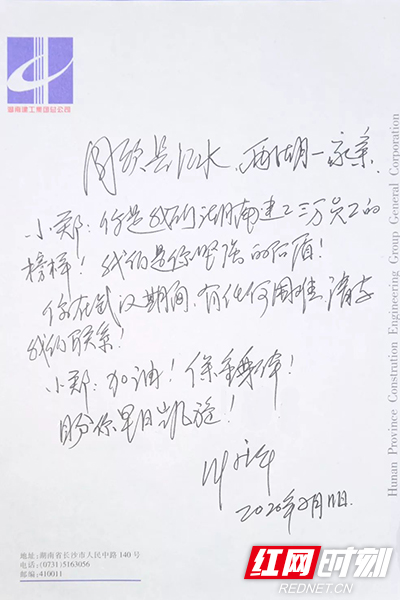 湖南建工集团总公司
同饮长江水、两湖一家亲.
小郑:你是我们湖南建工三万员工的
榜样!我们是你坚强的后盾!
你在武汉期间,有任何困难,请与
我们联系!
小郑:加油!保重身体!
盼你早日凯旋!
2020年2月11日.
Hunan Province Constration Engineering Group General Corporation
地址:湖南省长沙市人民中路 140 号
电话:(0731)5163056
邮编:410011
红网时刻
REDNET.CN